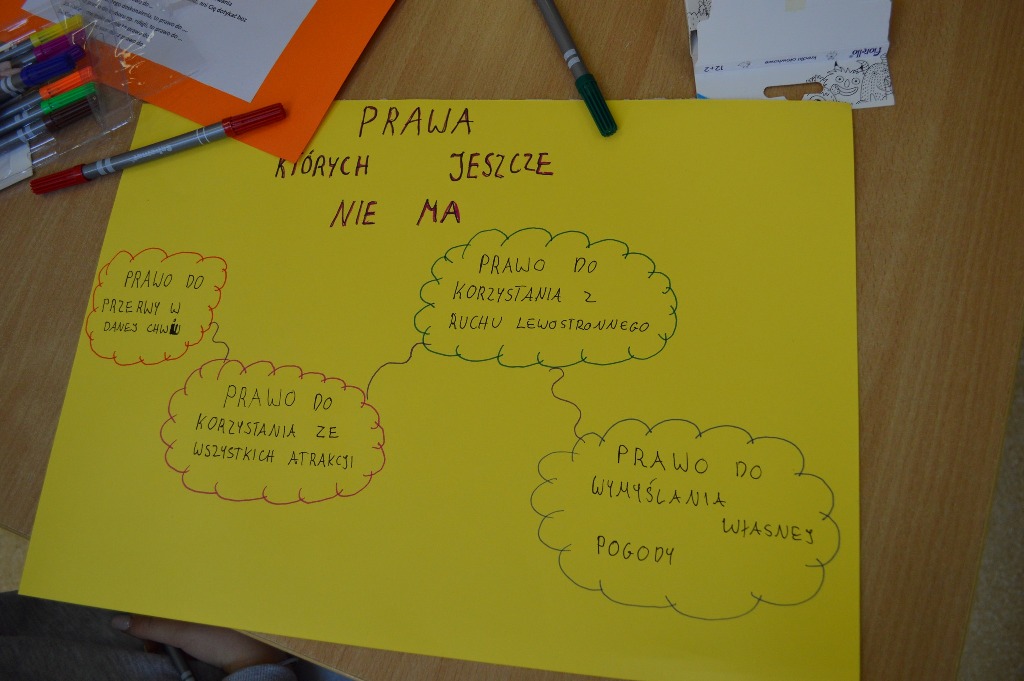 PRAWA
KTÓRYCH JESZCZE
NIE MA
PRAWO DO
PRZERWY W
DANEJ CHWILI
PRAWO DO
KORZYSTANIA ZE
WSZYSTKICH ATRAKCJI
PRAWO DO
KORZYSTANIA Z
RUCHU LEWOSTRONNEGO
PRAWO DO
WYMYŚLANIA
WŁASNEJ
POGODY
Fiorello
12+2